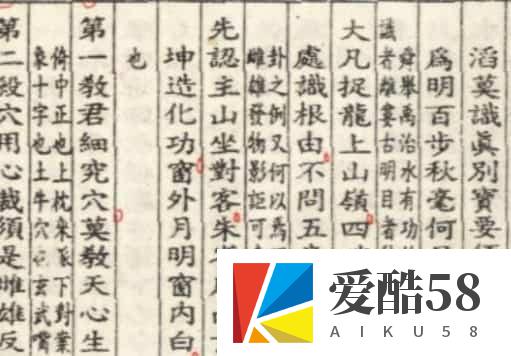 滔莫識眞別寶要
爲明百步秋毫何
舜擧禹治水有功
識者離婁古明目者
大凡捉龍上山嶺四
處識根由不問五
卦之例又何以爲
雌雄發物影詎可
先認主山坐對客朱
坤造化功窗外月明窗內白
也
第一敎君細究穴莫敎天心生
倚中正也上枕來下對業
象十字也土牛穴玄武嘴
第二殺穴用心裁須是雌雄反
爱酷58
AIKU58